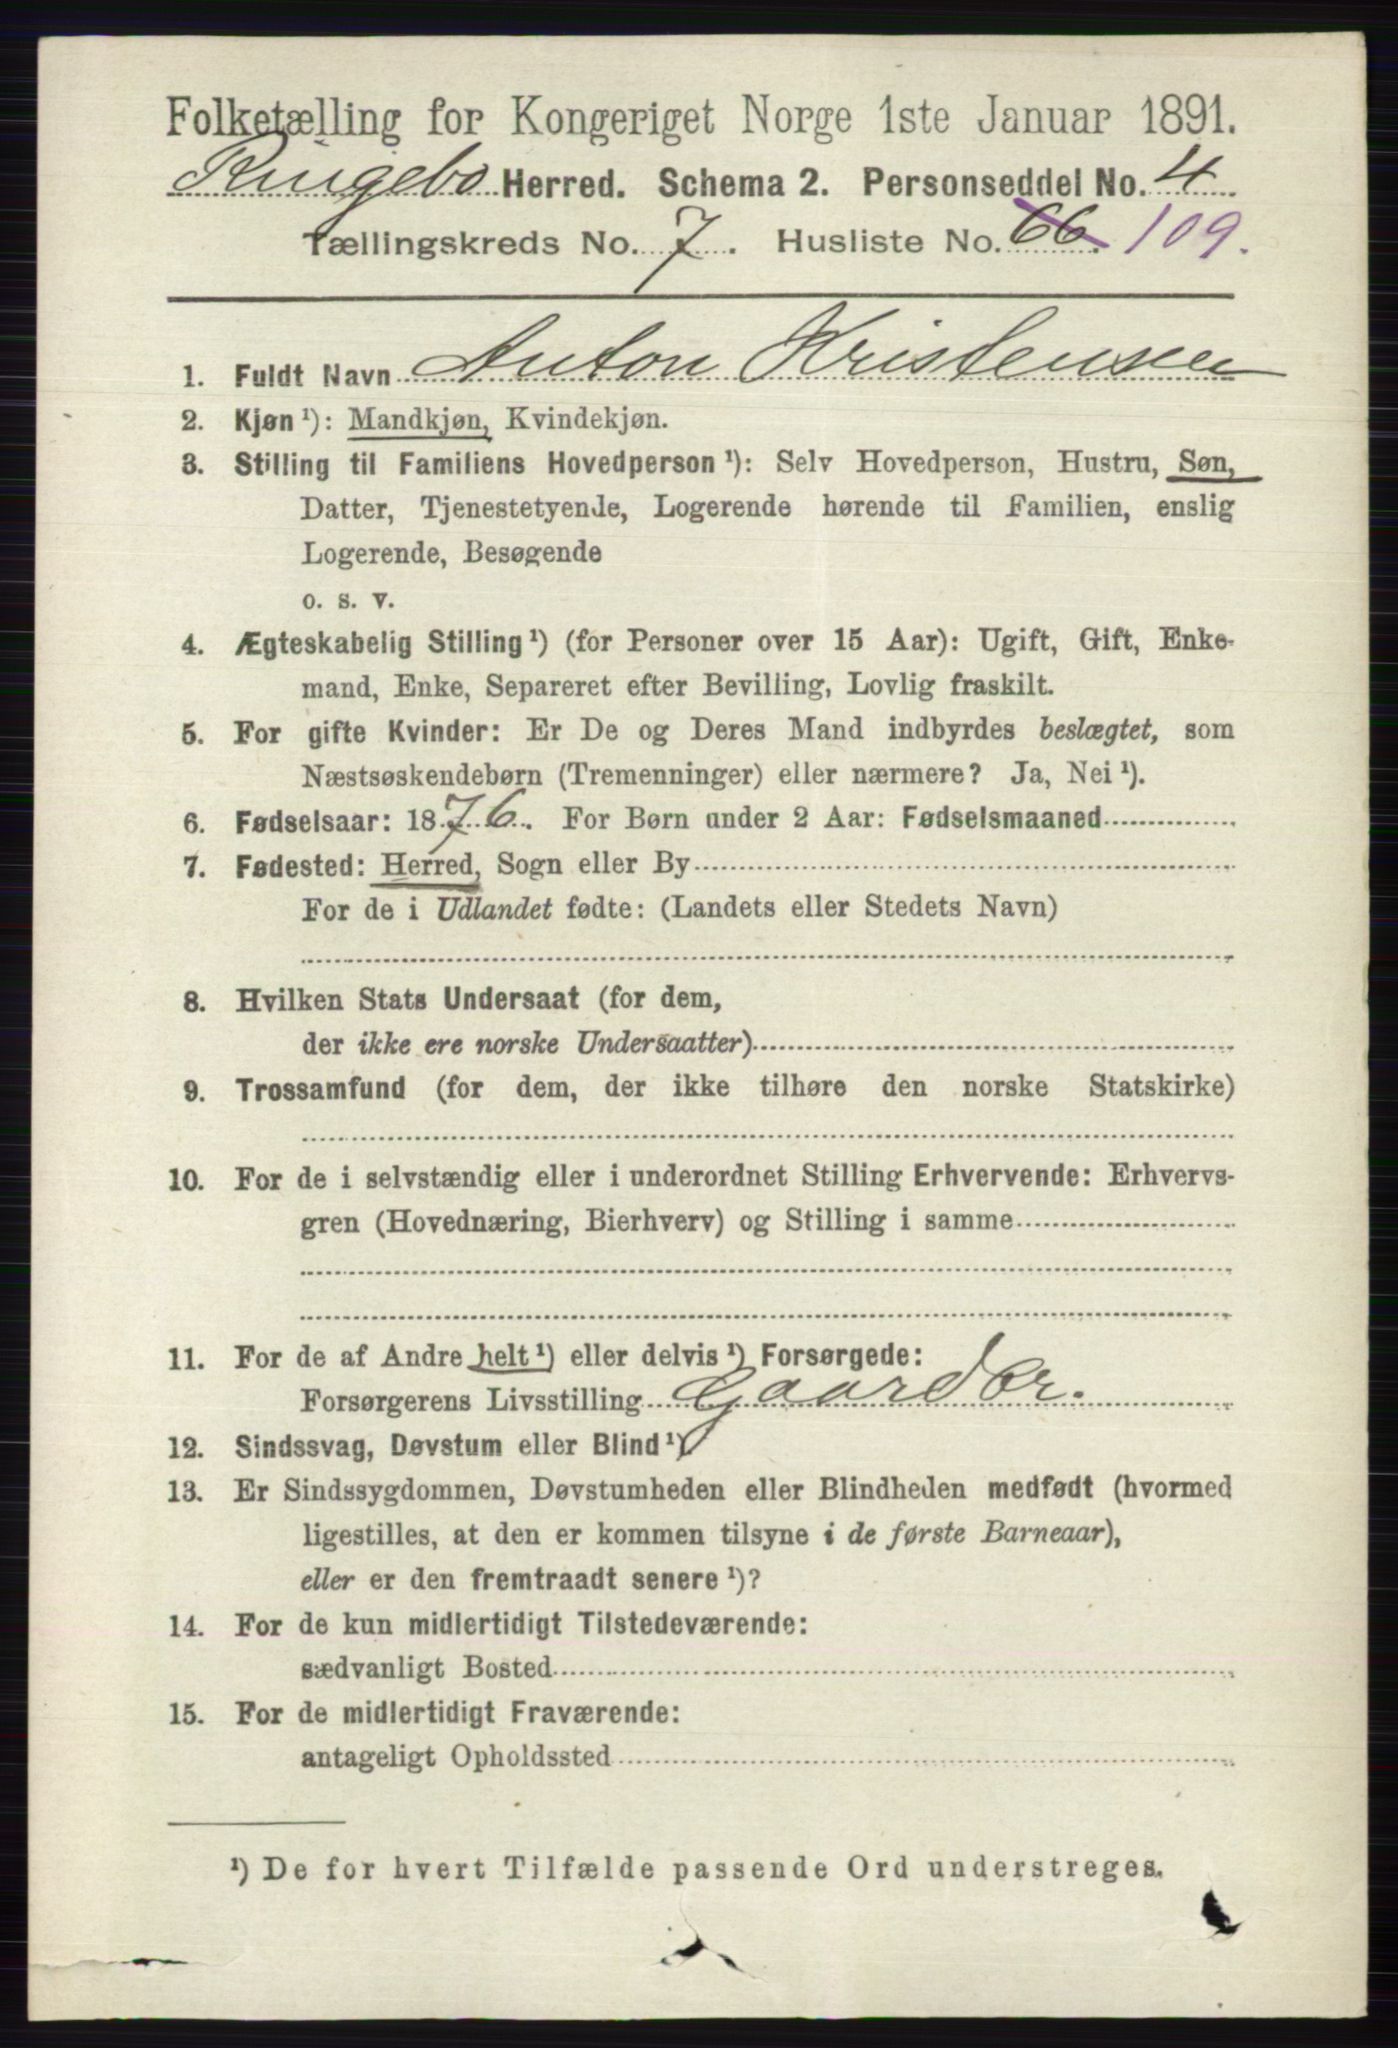 Folketælling for Kongeriget Norge 1ste Januar 1891.
Ringebo Herred. Schema 2. Personseddel No. 4
Tællingskreds No. 7. Husliste No. 66. 109.
1. Fuldt Navn Anton Kristensen
2. Kjøn ¹): Mandkjøn, Kvindekjøn.
3. Stilling til Familiens Hovedperson ¹): Selv Hovedperson, Hustru, Søn,
Datter, Tjenestetyende, Logerende hørende til Familien, enslig
Logerende, Besøgende
o. s. v.
4. Ægteskabelig Stilling ¹) (for Personer over 15 Aar): Ugift, Gift, Enke-
mand, Enke, Separeret efter Bevilling, Lovlig fraskilt.
5. For gifte Kvinder: Er De og Deres Mand indbyrdes beslægtet, som
Næstsøskendebørn (Tremenninger) eller nærmere? Ja, Nei ¹).
6. Fødselsaar: 1876. For Børn under 2 Aar: Fødselsmaaned
7. Fødested: Herred, Sogn eller By
For de i Udlandet fødte: (Landets eller Stedets Navn)
8. Hvilken Stats Undersaat (for dem,
der ikke ere norske Undersaatter)
9. Trossamfund (for dem, der ikke tilhøre den norske Statskirke)
10. For de i selvstændig eller i underordnet Stilling Erhvervende: Erhvervs-
gren (Hovednæring, Bierhverv) og Stilling i samme
11. For de af Andre helt ¹) eller delvis ¹) Forsørgede:
Forsørgerens Livsstilling Gaardbr.
12. Sindssvag, Døvstum eller Blind ¹)
13. Er Sindssygdommen, Døvstumheden eller Blindheden medfødt (hvormed
ligestilles, at den er kommen tilsyne i de første Barneaar),
eller er den fremtraadt senere ¹)?
14. For de kun midlertidigt Tilstedeværende:
sædvanligt Bosted
15. For de midlertidigt Fraværende:
antageligt Opholdssted
¹) De for hvert Tilfælde passende Ord understreges.